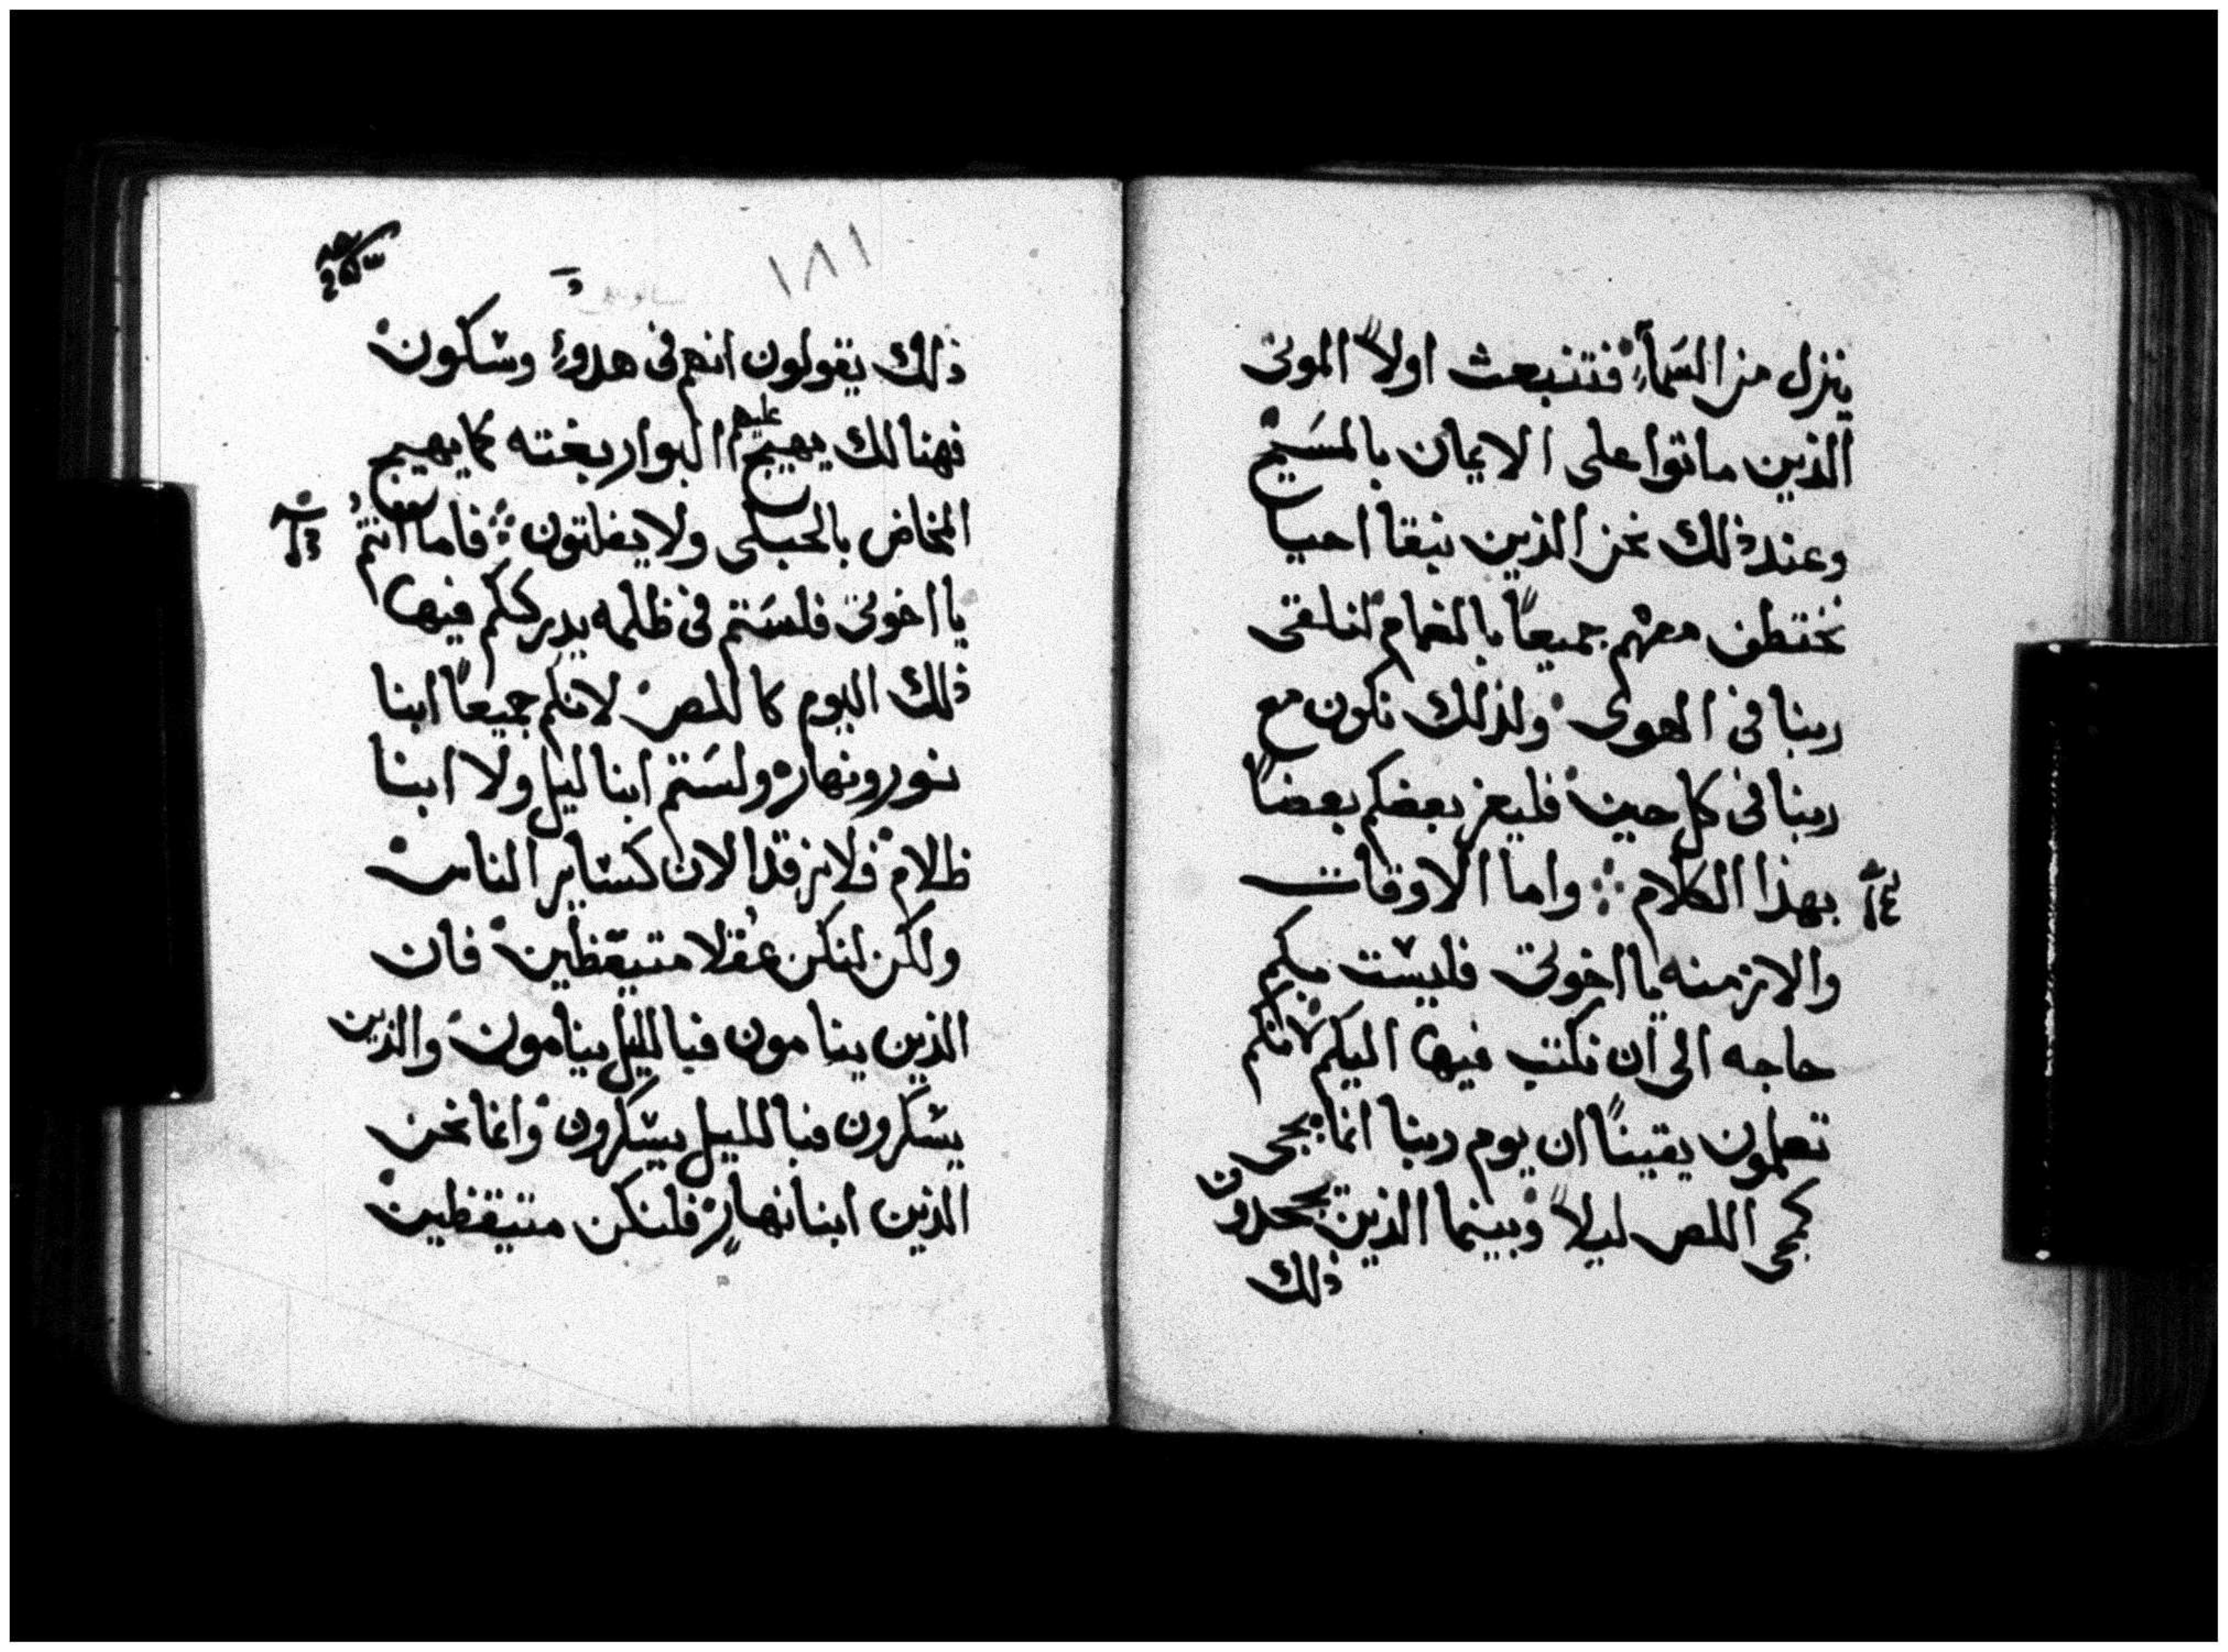 ينزل من السَمآءِ فتنبعث اولاً الموتى
الذين ماتوا على الايمان بالمسَيح
وعند ذلك نحن الذين نبقا احيا
نختطف معهم جميعاً بالغمام لنلقى
ربنا فى الهوى ولذلك نكون مع
ربنا فى كل حين فليعز بعضكم بعضاً
بهذا الكلام ܀ واما الاوقات
والازمنه يا اخوتى فليست بكم
حاجه الى ان نكتب فيها اليكم لانكم
تعلمون يقيناً ان يوم ربنا انما يجى
كمجى اللص ليلاً وبينما الذين يجحدون
ذلك
١٨١
ذلك يقولون انهم فى هدوءٍ وسكون
فهنالك يهيج عليهم البوار بغته كما يهيج
المخاض بالحبلى ولا يفلتون ܀ فاما انتم
يا اخوتى فلسَتم فى ظلمه يدرككم فيها
ذلك اليوم كاللص لانكم جميعاً ابنا
نور ونهار ولسَتم ابنا ليل ولا ابنا
ظلام فلا نرقد الان كساير الناس
ولكن لنكن عُقلا متيقظين فان
الذين ينامون فبالليل ينامون والذين
يسكرون فبالليل يسكرون وانما نحن
الذين ابنا نهارٍ فلنكن متيقظين